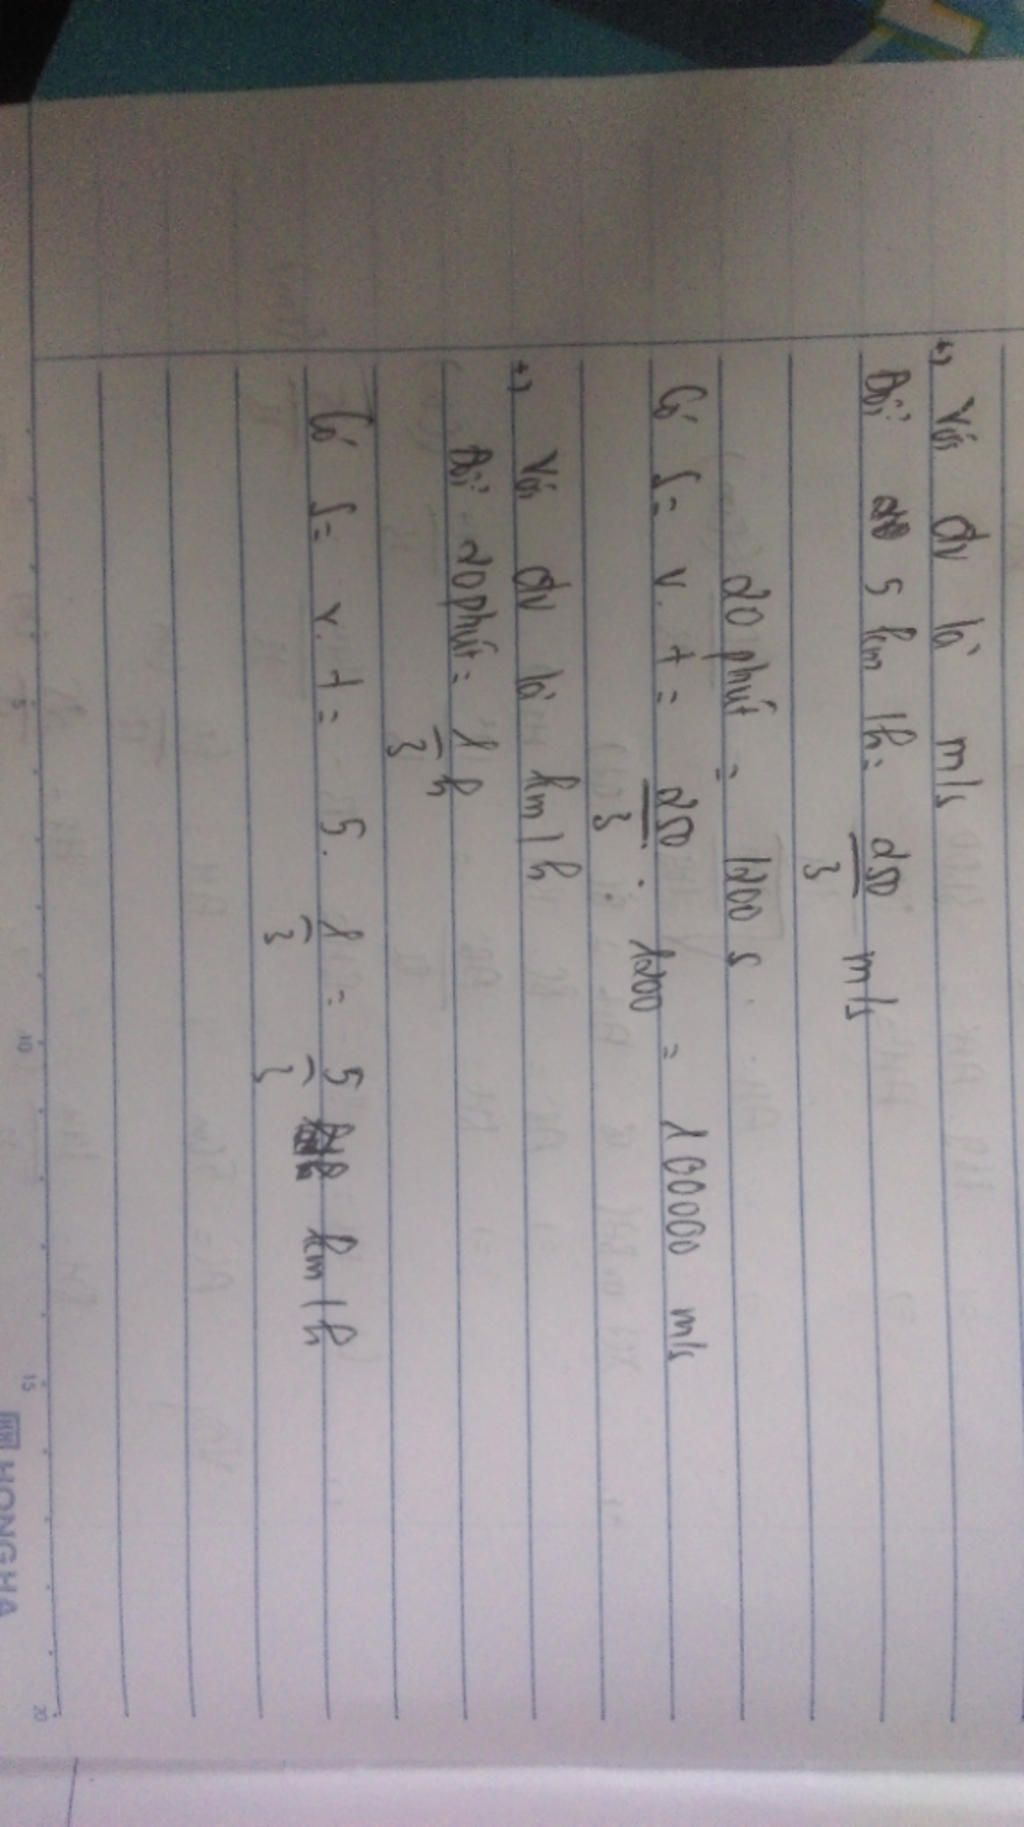 +) Với đv là m/s
Đổi 5 km/h = 250/3 m/s
20 phút = 1200 s
Có S = v. t = 250/3 . 1200 = 100000 m/s
+) Với đv là km/h
Đổi 20 phút = 1/3 h
Có S = v. t = 5. 1/3 = 5/3 km/h
5
10
15
20
HONG HA